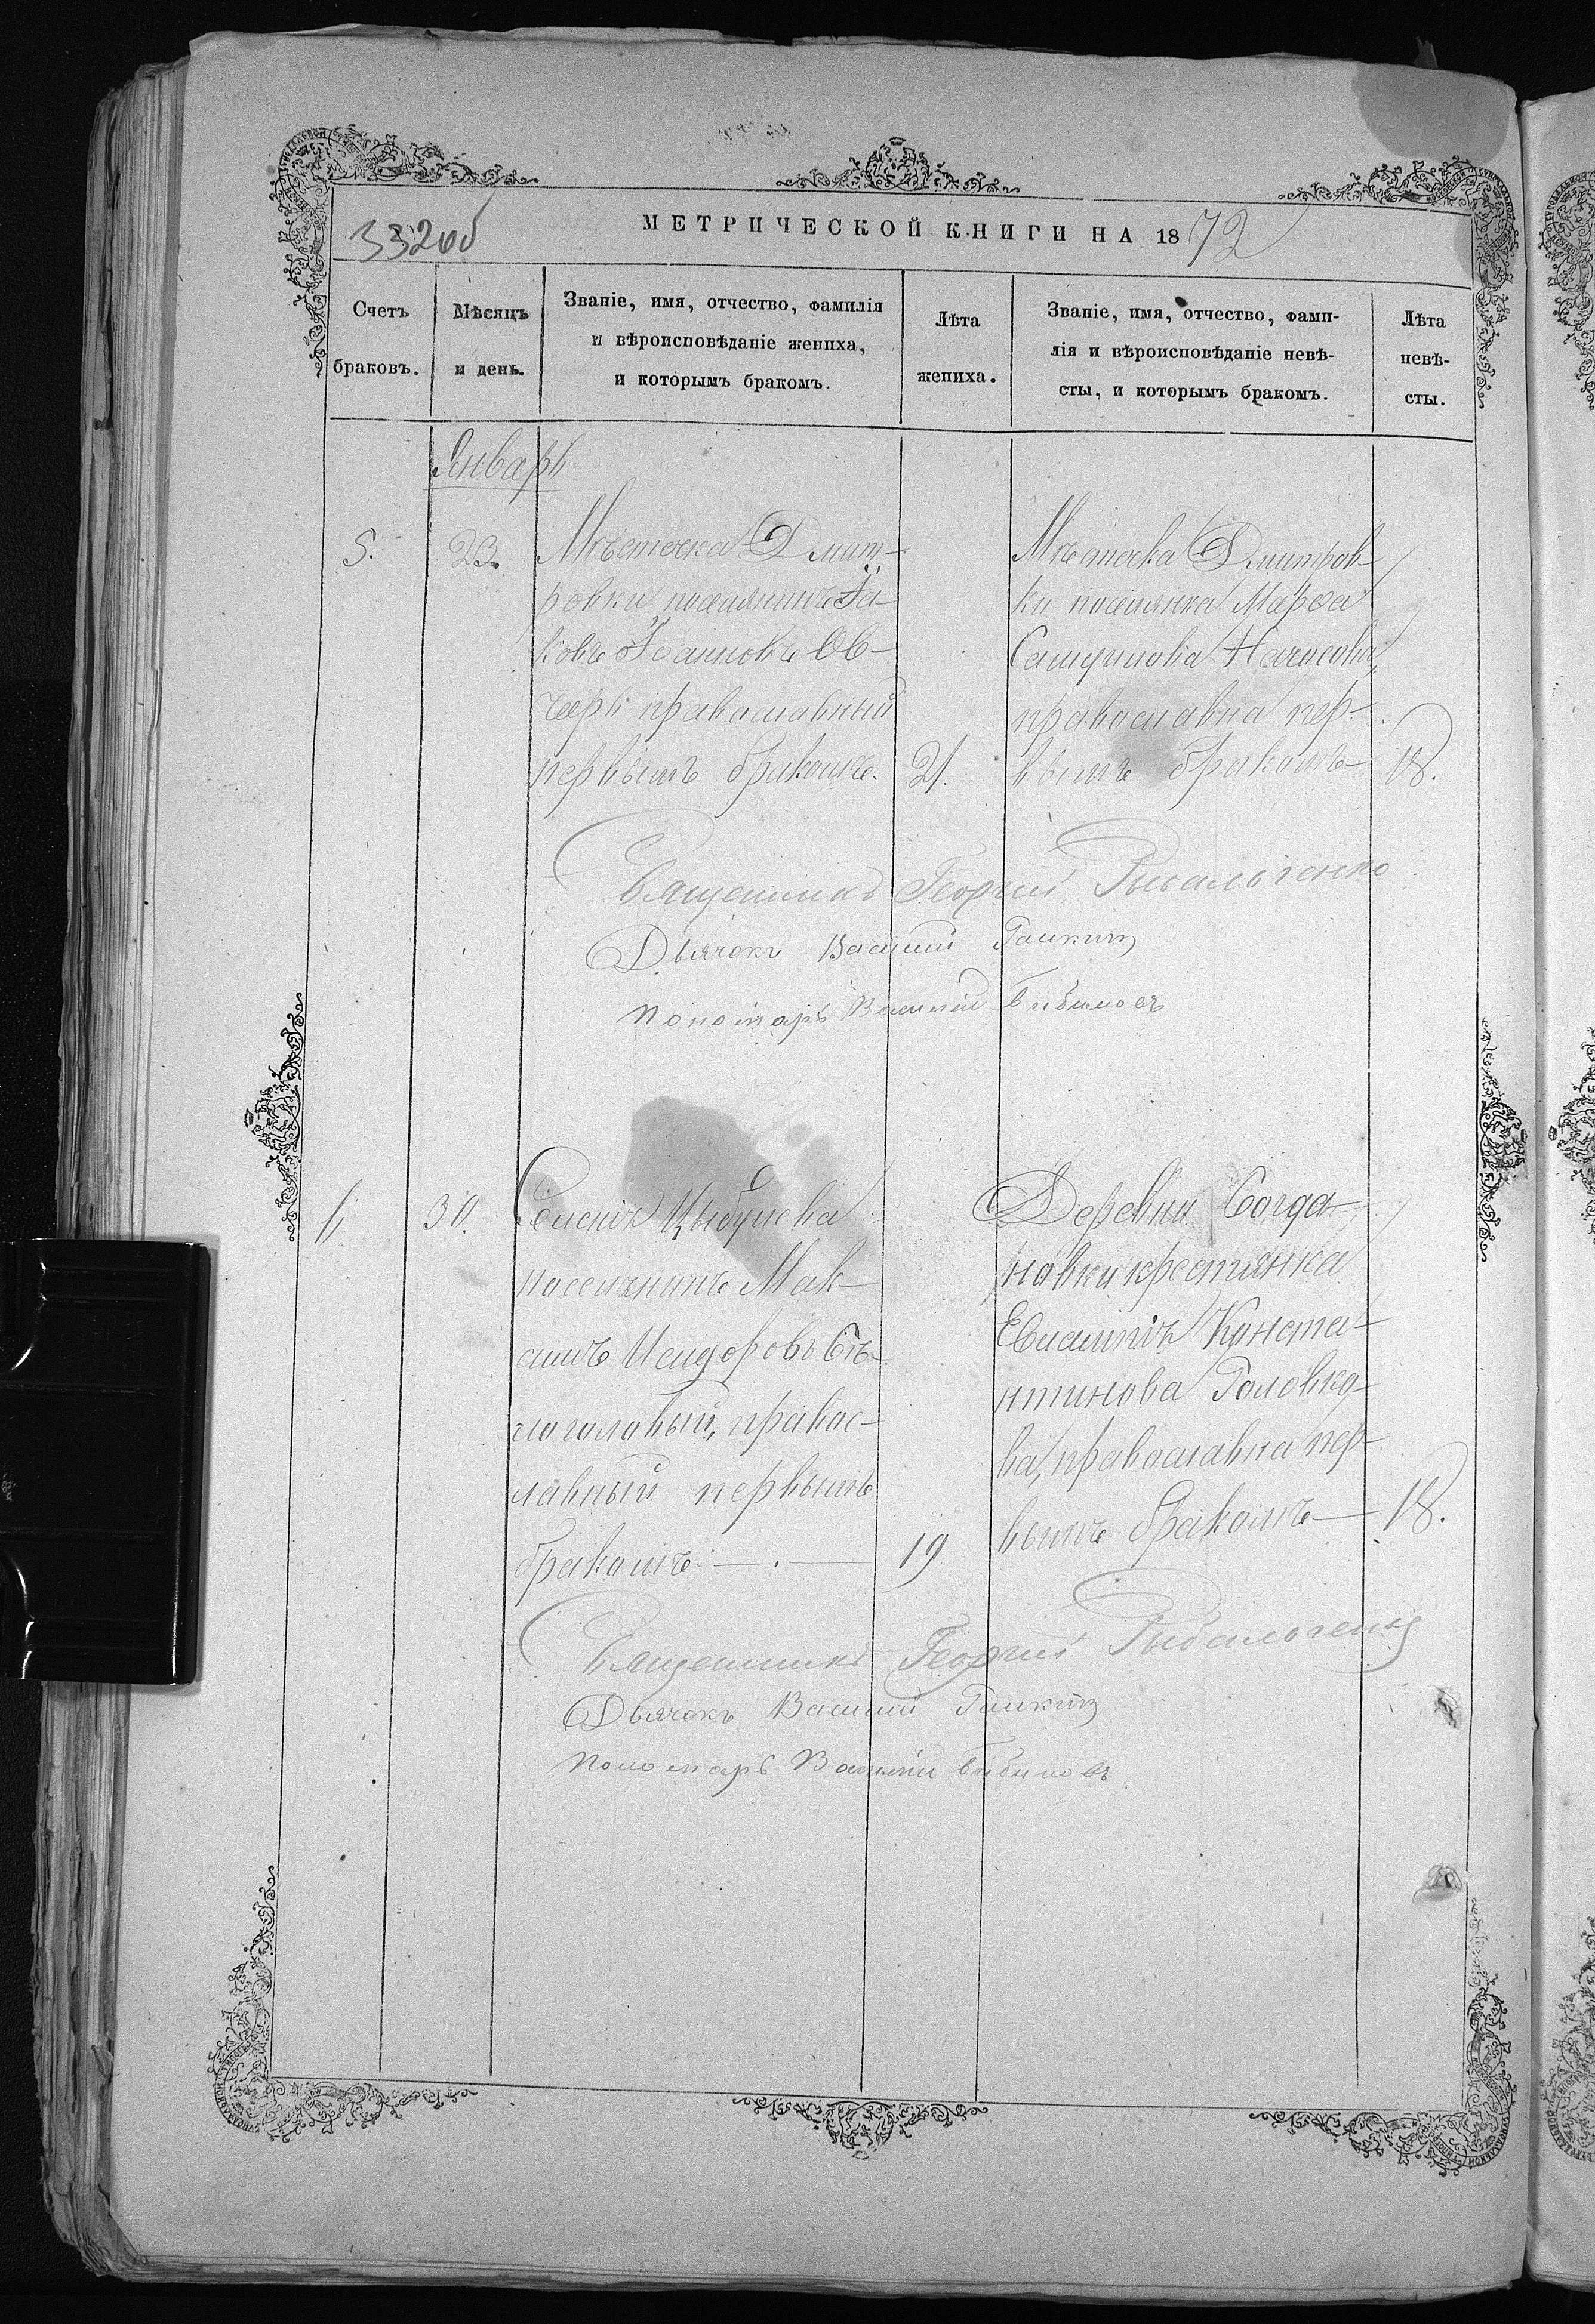 332об
МЕТРИЧЕСКОЙ КНИГИ НА 1872
Счетъ браковъ.
Мѣсяцъ и день.
Званіе, имя, отчество, фамилія
и вѣроисповѣданіе жениха,
и которымъ бракомъ.
Лѣта
жениха.
Званіе, имя, отчество, фами-
лія и вѣроисповѣданіе невѣ-
сты, и которымъ бракомъ.
Лѣта
невѣ-
сты.
Январь
5.
23.
Мѣстечка Дмит-
ровки поселянинъ Іа-
ковъ Іоанновъ Ов-
чарь православный
первымъ бракомъ.
21.
Мѣстечка Дмитров-
ки поселянка Марѳа
православна пер-
вымъ бракомъ
18.
Священникъ Георгій Рыбальченко
Дьячокъ Василій
Пономарь Василій
6
30.
Цыбулева
поселянинъ Мак-
симъ Исидоровъ Бѣ-
логоловый, правос-
лавный первымъ
бракомъ
19
Деревни Богда-
новки крестянка
Евлампія Конста-
нтинова Головко-
ва, православна пер-
вымъ бракомъ
18.
Священникъ Георгій Рыбальченко
Дьячокъ Василій
Пономарь Василій